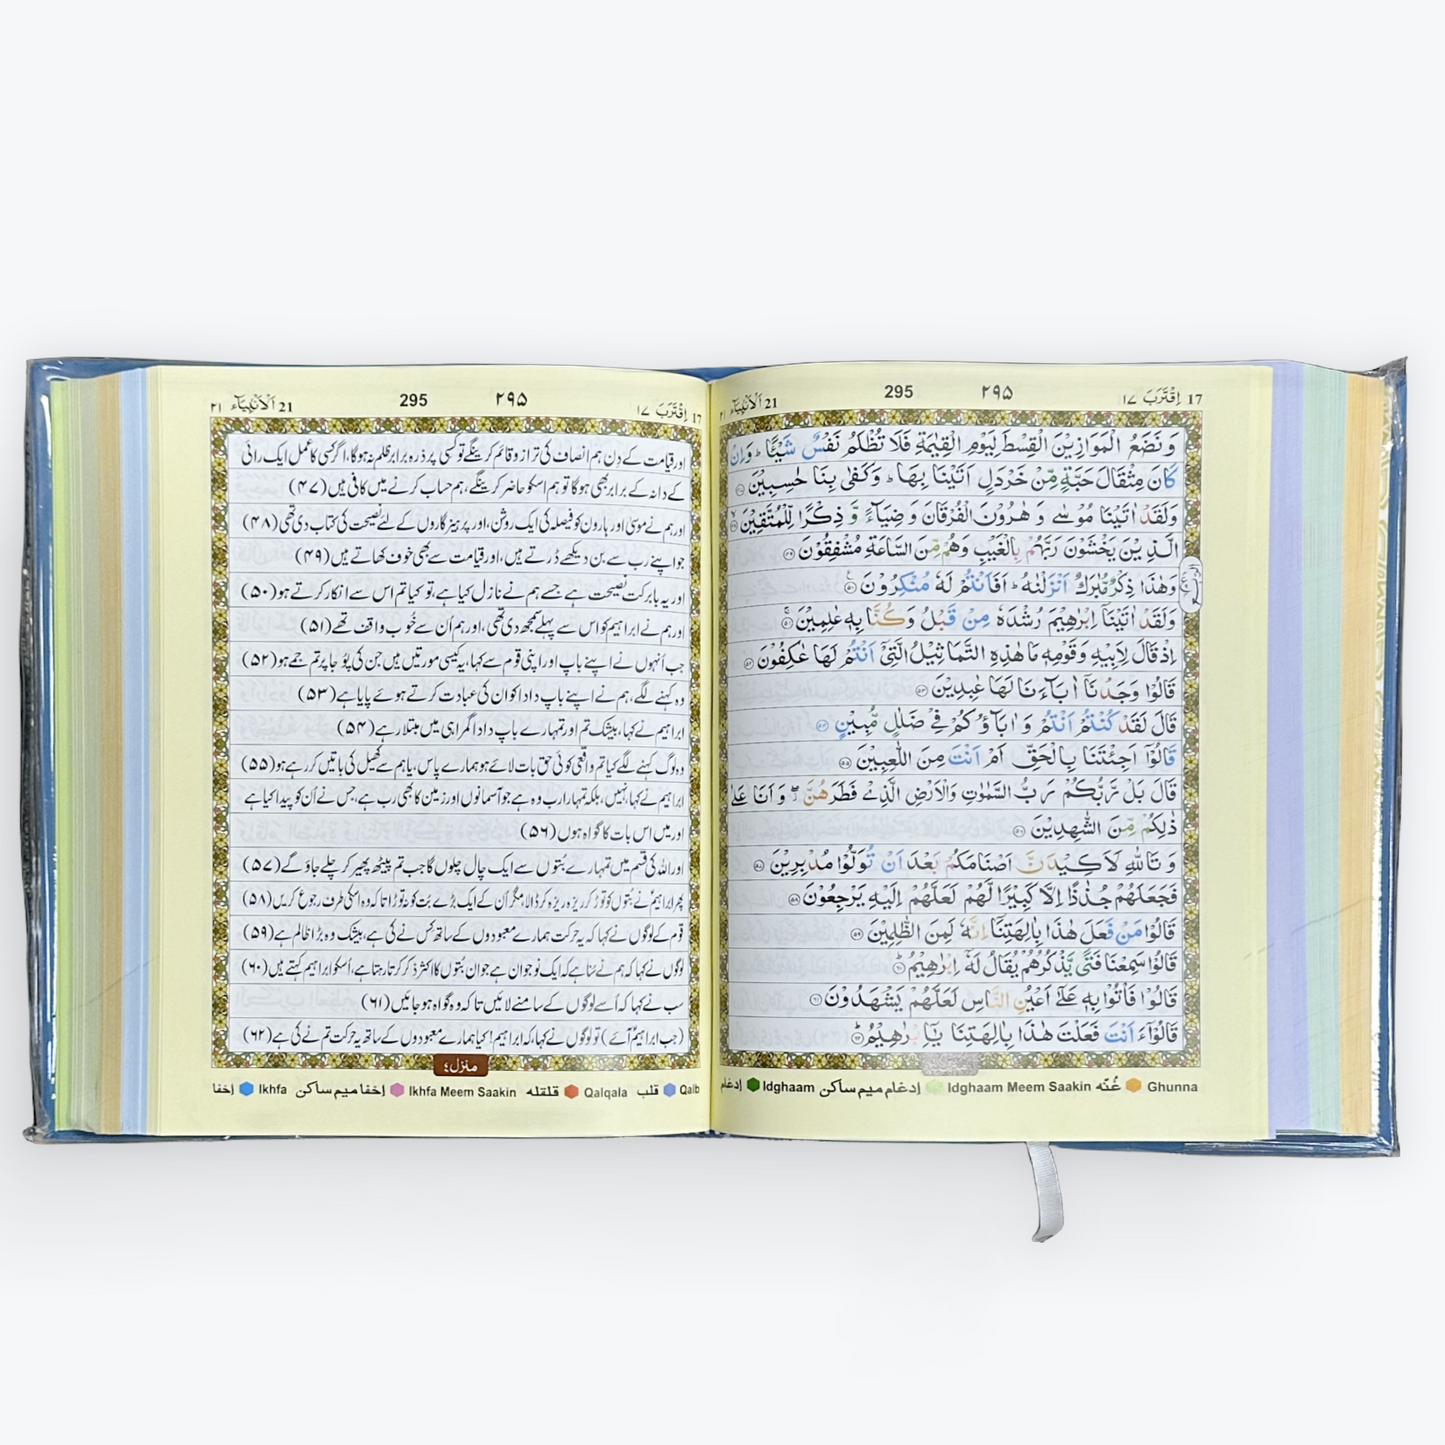 17 اِقْتَرَبَ ١٧
٢٩٥
295
21 اَلْاَنْبِيَآء
وَنَضَعُ الْمَوَازِيْنَ الْقِسْطَ لِيَوْمِ الْقِيٰمَةِ فَلَا تُظْلَمُ نَفْسٌ شَيْئًا ؕ وَاِنْ
كَانَ مِثْقَالَ حَبَّةٍ مِّنْ خَرْدَلٍ اَتَيْنَا بِهَا ؕ وَكَفٰى بِنَا حٰسِبِيْنَ ۝۴۷
وَلَقَدْ اٰتَيْنَا مُوْسٰى وَ هٰرُوْنَ الْفُرْقَانَ وَ ضِيَآءً وَّ ذِكْرًا لِّلْمُتَّقِيْنَ ۝۴۸
الَّذِيْنَ يَخْشَوْنَ رَبَّهُمْ بِالْغَيْبِ وَهُمْ مِّنَ السَّاعَةِ مُشْفِقُوْنَ ۝۴۹
وَهٰذَا ذِكْرٌ مُّبٰرَكٌ اَنْزَلْنٰهُ ؕ اَفَاَنْتُمْ لَهٗ مُنْكِرُوْنَ ۝۵۰
وَلَقَدْ اٰتَيْنَآ اِبْرٰهِيْمَ رُشْدَهٗ مِنْ قَبْلُ وَكُنَّا بِهٖ عٰلِمِيْنَ ۝۵۱
اِذْ قَالَ لِاَبِيْهِ وَقَوْمِهٖ مَا هٰذِهِ التَّمَاثِيْلُ الَّتِيْٓ اَنْتُمْ لَهَا عٰكِفُوْنَ ۝۵۲
قَالُوْا وَجَدْنَآ اٰبَآءَنَا لَهَا عٰبِدِيْنَ ۝۵۳
قَالَ لَقَدْ كُنْتُمْ اَنْتُمْ وَ اٰبَآؤُكُمْ فِيْ ضَلٰلٍ مُّبِيْنٍ ۝۵۴
قَالُوْٓا اَجِئْتَنَا بِالْحَقِّ اَمْ اَنْتَ مِنَ اللّٰعِبِيْنَ ۝۵۵
قَالَ بَلْ رَّبُّكُمْ رَبُّ السَّمٰوٰتِ وَالْاَرْضِ الَّذِيْ فَطَرَهُنَّ ۖ وَ اَنَا عَلٰى
ذٰلِكُمْ مِّنَ الشّٰهِدِيْنَ ۝۵۶
وَ تَاللّٰهِ لَاَكِيْدَنَّ اَصْنَامَكُمْ بَعْدَ اَنْ تُوَلُّوْا مُدْبِرِيْنَ ۝۵۷
فَجَعَلَهُمْ جُذٰذًا اِلَّا كَبِيْرًا لَّهُمْ لَعَلَّهُمْ اِلَيْهِ يَرْجِعُوْنَ ۝۵۸
قَالُوْا مَنْ فَعَلَ هٰذَا بِاٰلِهَتِنَآ اِنَّهٗ لَمِنَ الظّٰلِمِيْنَ ۝۵۹
قَالُوْا سَمِعْنَا فَتًى يَّذْكُرُهُمْ يُقَالُ لَهٗٓ اِبْرٰهِيْمُ ۝۶۰
قَالُوْا فَاْتُوْا بِهٖ عَلٰٓى اَعْيُنِ النَّاسِ لَعَلَّهُمْ يَشْهَدُوْنَ ۝۶۱
قَالُوْٓا ءَاَنْتَ فَعَلْتَ هٰذَا بِاٰلِهَتِنَا يٰٓاِبْرٰهِيْمُ ۝۶۲
إدغام Idghaam إدغام ميم ساكن Idghaam Meem Saakin غُنّه Ghunna
17 اِقْتَرَبَ ١٧
٢٩٥
295
21 اَلْاَنْبِيَآء ٢١
اور قیامت کے دِن ہم انصاف کی ترازو قائم کرینگے تو کسی پر ذرہ برابر ظلم نہ ہوگا، اگر کسی کا عمل ایک رائی
کے دانہ کے برابر بھی ہوگا تو ہم اسکو حاضر کرینگے، ہم حساب کرنے میں کافی ہیں (۴۷)
اور ہم نے موسیٰ اور ہارون کو فیصلہ کی ایک روشن، اور پرہیزگاروں کے لئے نصیحت کی کتاب دی تھی (۴۸)
جو اپنے رب سے بن دیکھے ڈرتے ہیں، اور قیامت سے بھی خوف کھاتے ہیں (۴۹)
اور یہ بابرکت نصیحت ہے جسے ہم نے نازل کیا ہے، تو کیا تم اس سے انکار کرتے ہو (۵۰)
اور ہم نے ابراہیم کو اس سے پہلے سمجھ دی تھی، اور ہم اُن سے خُوب واقف تھے (۵۱)
جب اُنہوں نے اپنے باپ اور اپنی قوم سے کہا، یہ کیسی مورتیں ہیں جن کی پُوجا پر تم جمے ہو (۵۲)
وہ کہنے لگے، ہم نے اپنے باپ دادا کو ان کی عبادت کرتے ہوئے پایا ہے (۵۳)
ابراہیم نے کہا، بیشک تم اور تمہارے باپ دادا گمراہی میں مبتلا رہے (۵۴)
وہ لوگ کہنے لگے کیا تم واقعی کوئی حق بات لائے ہو ہمارے پاس، یا ہم سے کھیل کی باتیں کر رہے ہو (۵۵)
ابراہیم نے کہا، نہیں، بلکہ تمہارا رب وہ ہے جو آسمانوں اور زمین کا بھی رب ہے، جس نے اُن کو پیدا کیا ہے
اور میں اس بات کا گواہ ہوں (۵۶)
اور اللہ کی قسم میں تمہارے بُتوں سے ایک چال چلوں گا جب تم پیٹھ پھیر کر چلے جاؤ گے (۵۷)
پھر ابراہیمؑ نے بُتوں کو توڑ کر ریزہ ریزہ کر ڈالا، مگر اُن کے ایک بڑے بت کو نہ توڑا تا کہ وہ اسکی طرف رجوع کریں (۵۸)
قوم کے لوگوں نے کہا کہ یہ حرکت ہمارے معبودوں کے ساتھ کس نے کی ہے، بیشک وہ بڑا ظالم ہے (۵۹)
لوگوں نے کہا کہ ہم نے سُنا ہے کہ ایک نوجوان ہے جو ان بُتوں کا اکثر ذکر کرتا رہتا ہے، اُسکو ابراہیم کہتے ہیں (۶۰)
سب نے کہا کہ اُسے لوگوں کے سامنے لائیں تا کہ وہ گواہ ہو جائیں (۶۱)
(جب ابراہیمؑ آئے) تو لوگوں نے کہا، کہ ابراہیم! کیا ہمارے معبودوں کے ساتھ یہ حرکت تم نے کی ہے (۶۲)
منزل ٤
إخفا Ikhfa إخفا ميم ساكن Ikhfa Meem Saakin قلقله Qalqala قلب Qalb